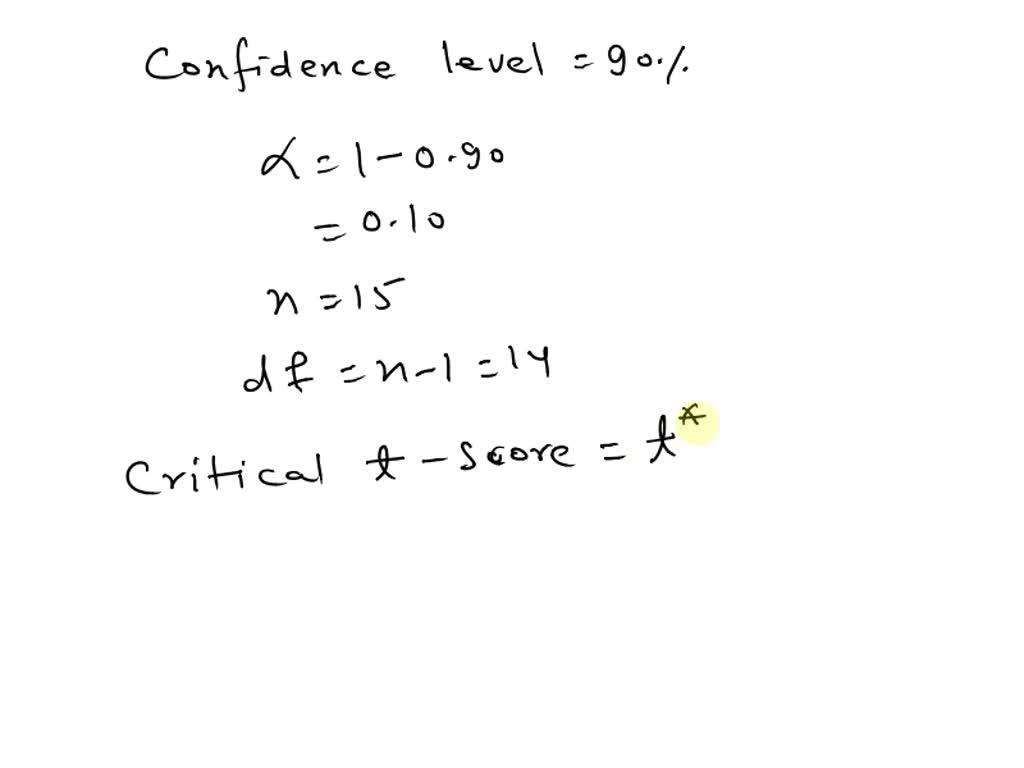 Confidence level = 90%
α = 1 - 0.90
= 0.10
n = 15
df = n-1 = 14
Critical t-score = t*